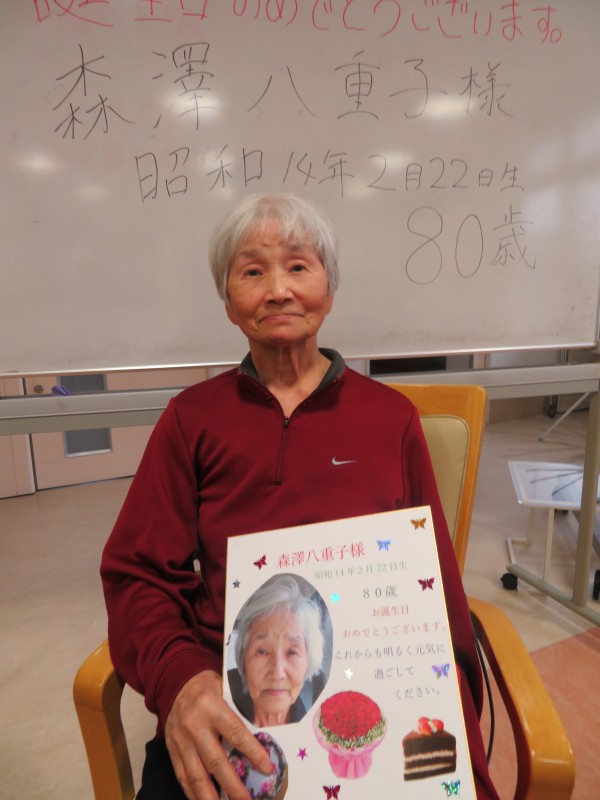 誕生日おめでとうございます。
森澤八重子様
昭和14年2月22日生
80歳
森澤八重子様
昭和14年2月22日生
80歳
お誕生日
おめでとうございます。
これからも明るく元気に
過ごして
ください。